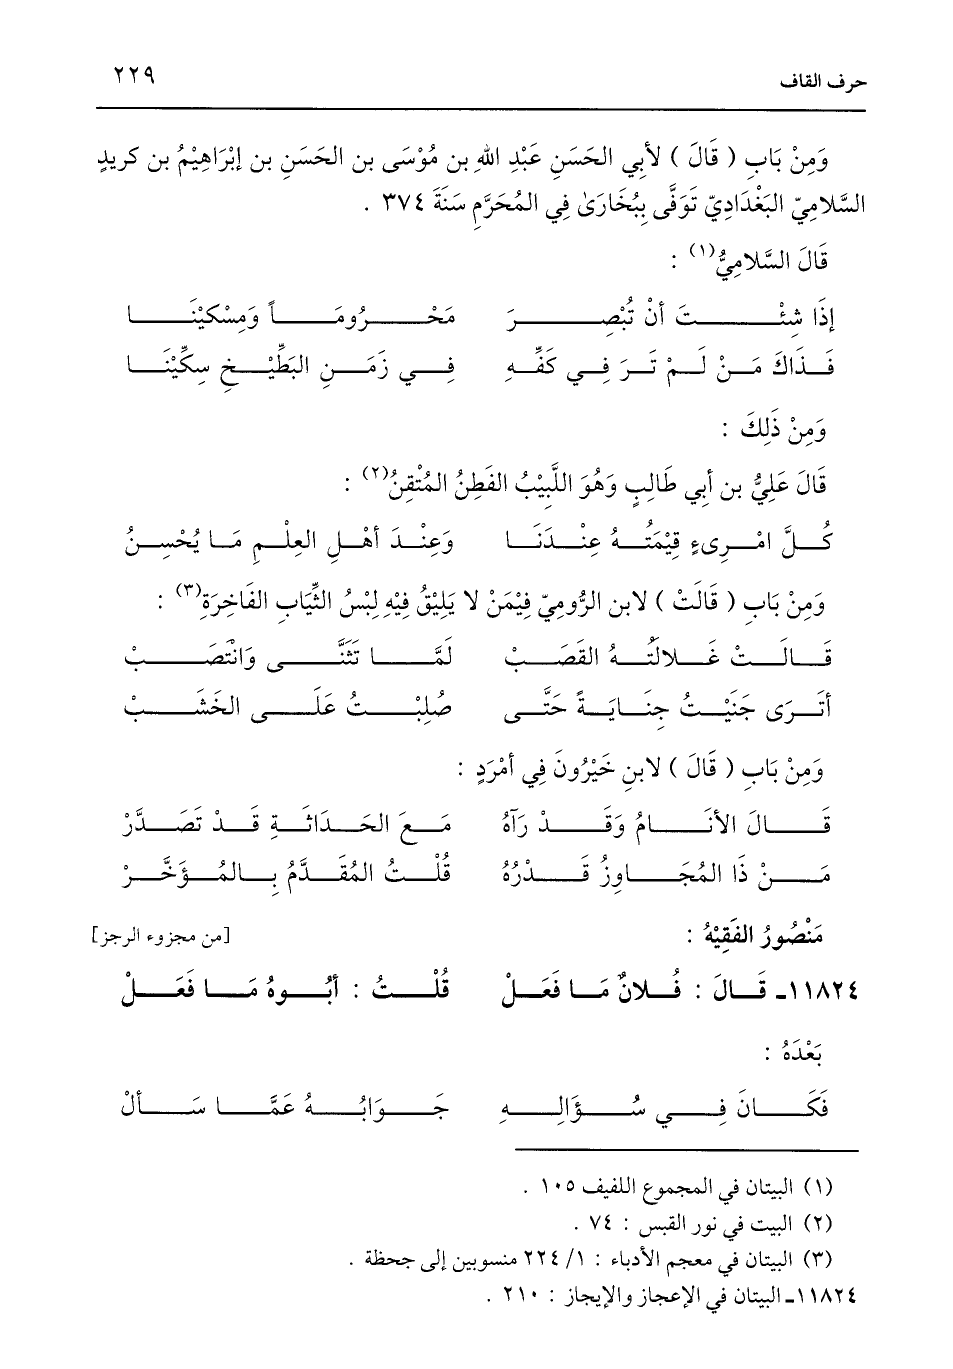 حرف القاف ٢٢٩
وَمِنْ بَابِ ( قَالَ ) لأبي الحَسَنِ عَبْدِ اللهِ بن مُوْسَى بن الحَسَنِ بن إبْرَاهِيْمُ بن كريدٍ
السَّلامِيّ البَغْدَادِيّ تَوَفَّى بِبُخَارَىٰ فِي المُحَرَّمِ سَنَةَ ٣٧٤ .
قَالَ السَّلامِيُّ(١) :
إذَا شِئْتَ أنْ تُبْصِرَ مَحْرُومَاً وَمِسْكِيْنَا
فَذَاكَ مَنْ لَمْ تَرَ فِي كَفِّهِ فِي زَمَنِ البَطِّيْخِ سِكِّيْنَا
وَمِنْ ذَلِكَ :
قَالَ عَلِيُّ بن أبِي طَالِبٍ وَهُوَ اللَّبِيْبُ الفَطِنُ المُتْقِنُ(٢) :
كُلَّ امْرِىءٍ قِيْمَتُهُ عِنْدَنَا وَعِنْدَ أهْلِ العِلْمِ مَا يُحْسِنُ
وَمِنْ بَابِ ( قَالَتْ ) لابن الرُّومِيّ فِيْمَنْ لا يَلِيْقُ فِيْهِ لِبْسُ الثِّيَابِ الفَاخِرَةِ(٣) :
قَالَتْ غَلالَتُهُ القَصَبْ لَمَّا تَثَنَّى وَانْتَصَبْ
أتَرَى جَنَيْتُ جِنَايَةً حَتَّى صُلِبْتُ عَلَى الخَشَبْ
وَمِنْ بَابِ ( قَالَ ) لابنِ خَيْرُونَ فِي أمْرَدٍ :
قَالَ الأنَامُ وَقَدْ رَآهُ مَعَ الحَدَاثَةِ قَدْ تَصَدَّرْ
مَنْ ذَا المُجَاوِزُ قَدْرُهُ قُلْتُ المُقَدَّمُ بِالمُؤَخَّرْ
مَنْصُورُ الفَقِيْهُ : [من مجزوء الرجز]
١١٨٢٤ـ قَالَ : فُلانٌ مَا فَعَلْ قُلْتُ : أبُوهُ مَا فَعَلْ
بَعْدَهُ :
فَكَانَ فِي سُؤَالِهِ جَوَابُهُ عَمَّا سَألْ
(١) البيتان في المجموع اللفيف ١٠٥ .
(٢) البيت في نور القبس : ٧٤ .
(٣) البيتان في معجم الأدباء : ١/ ٢٢٤ منسوبين إلى جحظة .
١١٨٢٤ـ البيتان في الإعجاز والإيجاز : ٢١٠ .